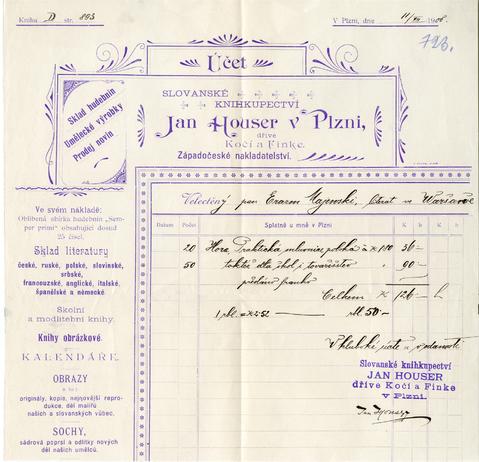 Kniha D str. 893
V Plzni, dne 11/VII 1908.
723.
Účet
Sklad hudebnin
Umělecké výrobky
Prodej novin
SLOVANSKÉ
KNIHKUPECTVÍ
Jan Houser v Plzni,
dříve
Kočí a Finke.
Západočeské nakladatelství.
Velectěný pan Erazm Majewski, ve Waršavě
Datum Počet Splatné u mně v Plzni
20 Hora, Praktická mluvnice polská à K 1·80 36 —
50 taktéž dla škol i 90 —
franko
Celkem K 126 — h
1 rbl. = K 2·52 — rbl. 50 —
V hluboké úctě a oddanosti
Slovanské knihkupectví
JAN HOUSER
dříve Kočí a Finke
v Plzni.
Jan Houser
Ve svém nákladě:
Oblíbená sbírka hudebnin „Sem-
per primi“ obsahující dosud
25 čísel.
Sklad literatury
české, ruské, polské, slovinské,
srbské,
francouzské, anglické, italské,
španělské a německé.
Školní
a modlitební knihy.
Knihy obrázkové.
KALENDÁŘE.
OBRAZY
a to:
originály, kopie, nejnovější repro-
dukce, děl malířů
našich a slovanských vůbec.
SOCHY,
sádrová poprsí a odlitky nových
děl našich umělců.